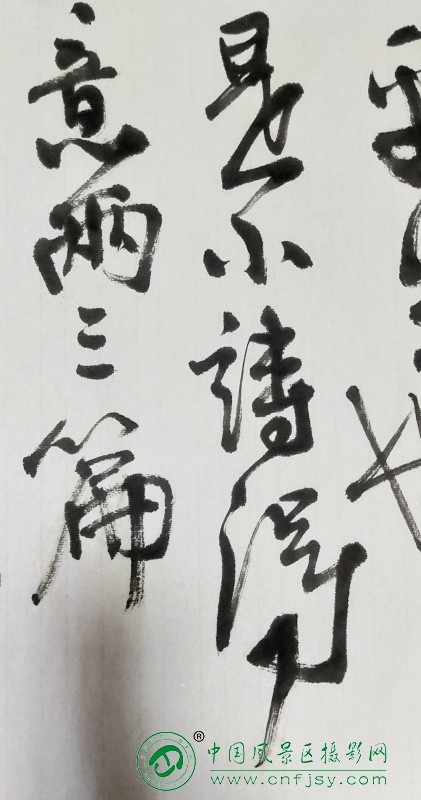 是小詩得
意兩三篇
® 中国风景区摄影网
www.cnfjsy.com